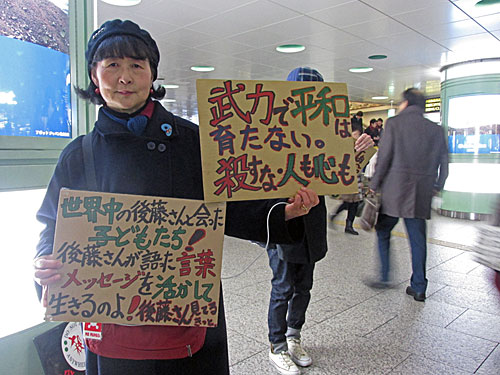 武力で平和は
育たない。
殺すな人も心も
世界中の後藤さんと会った
子どもたち!
後藤さんが語った言葉
メッセージを活かして
生きるのよ!後藤さん見てる
きっと